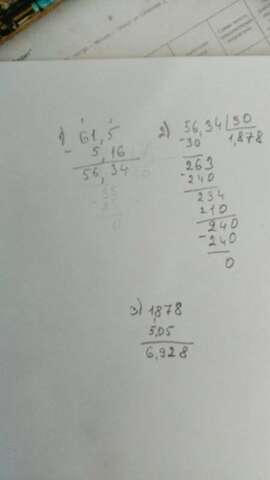 1) 61,5
- 5,16
56,34
2) 56,34 | 30
1,878
-30
263
-240
234
210
240
-240
0
3) 1,878
5,05
6,928